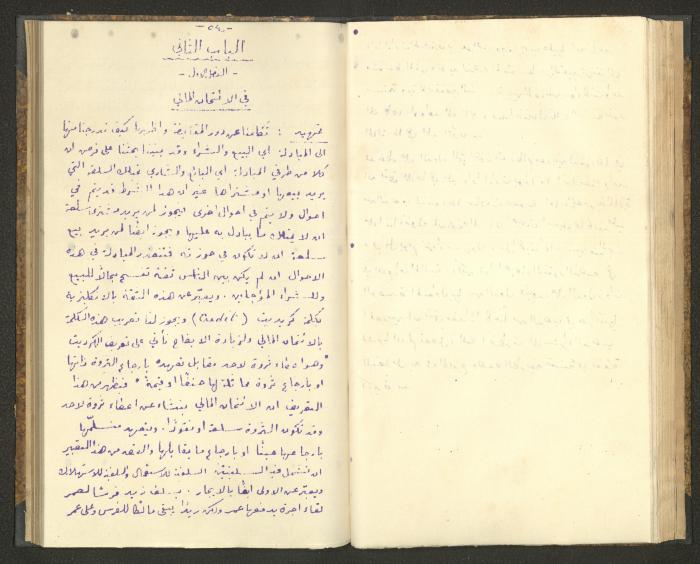 - ٥٤ -
الباب الثاني
- الفصل الأول -
في الائتمان المالي
تمهيد : تكلمنا عن دور المقايضة واظهرنا كيف تدرجنا منها
الى المبادلة اي البيع والشراء وقد بنينا ابحثنا على فرض ان
كلا من طرفي المبادلة اي البائع والشاري تملك السلعة التي
يريد بيعها او مشتراها غير ان هذا الشرط قد يتم في
احوال ولا يتم في احوال اخرى فيجوز لمن يريد مشترى سلعة
ان لا يمتلك ما يبادل به عليها ويجوز ايضا لمن يريد بيع
سلعة ان لا تكون في حوزته فتتعذر المبادلة في هذه
الاحوال ان لم يكن بين الناس ثقة تفسح مجالا للبيع
وللشراء المؤجلين. ويعبر عن هذه الثقة بالانكليزية
بكلمة كريديت (Credit) ويجوز لنا تعريب هذه الكلمة
بالائتمان المالي ولزيادة الايضاح نأتي على تعريف الكرديت
"وهو اعطاء ثروة لاحد مقابل تعهده بارجاع الثروة ذاتها
او بارجاع ثروة مماثلة لها صنفا او قيمة" فيظهر من هذا
التعريف ان الائتمان المالي ينشاء عن اعطاء ثروة لاحد
وقد تكون الثروة سلعة او نقودا. ويتعهد متسلمها
بارجاعها عينا او بارجاع ما يقابلها والقصد من هذا التعبير
ان تشمل فيه السلعتين السلعة للاستعمال والسلعة للاستهلاك
ويعبر عن الاولى ايضا بالايجار. يسلف زيد فرسا لعمر
لقاء اجرة يدفعها عمر ولكن زيدا يبقى مالكا للفرس وعلى عمر